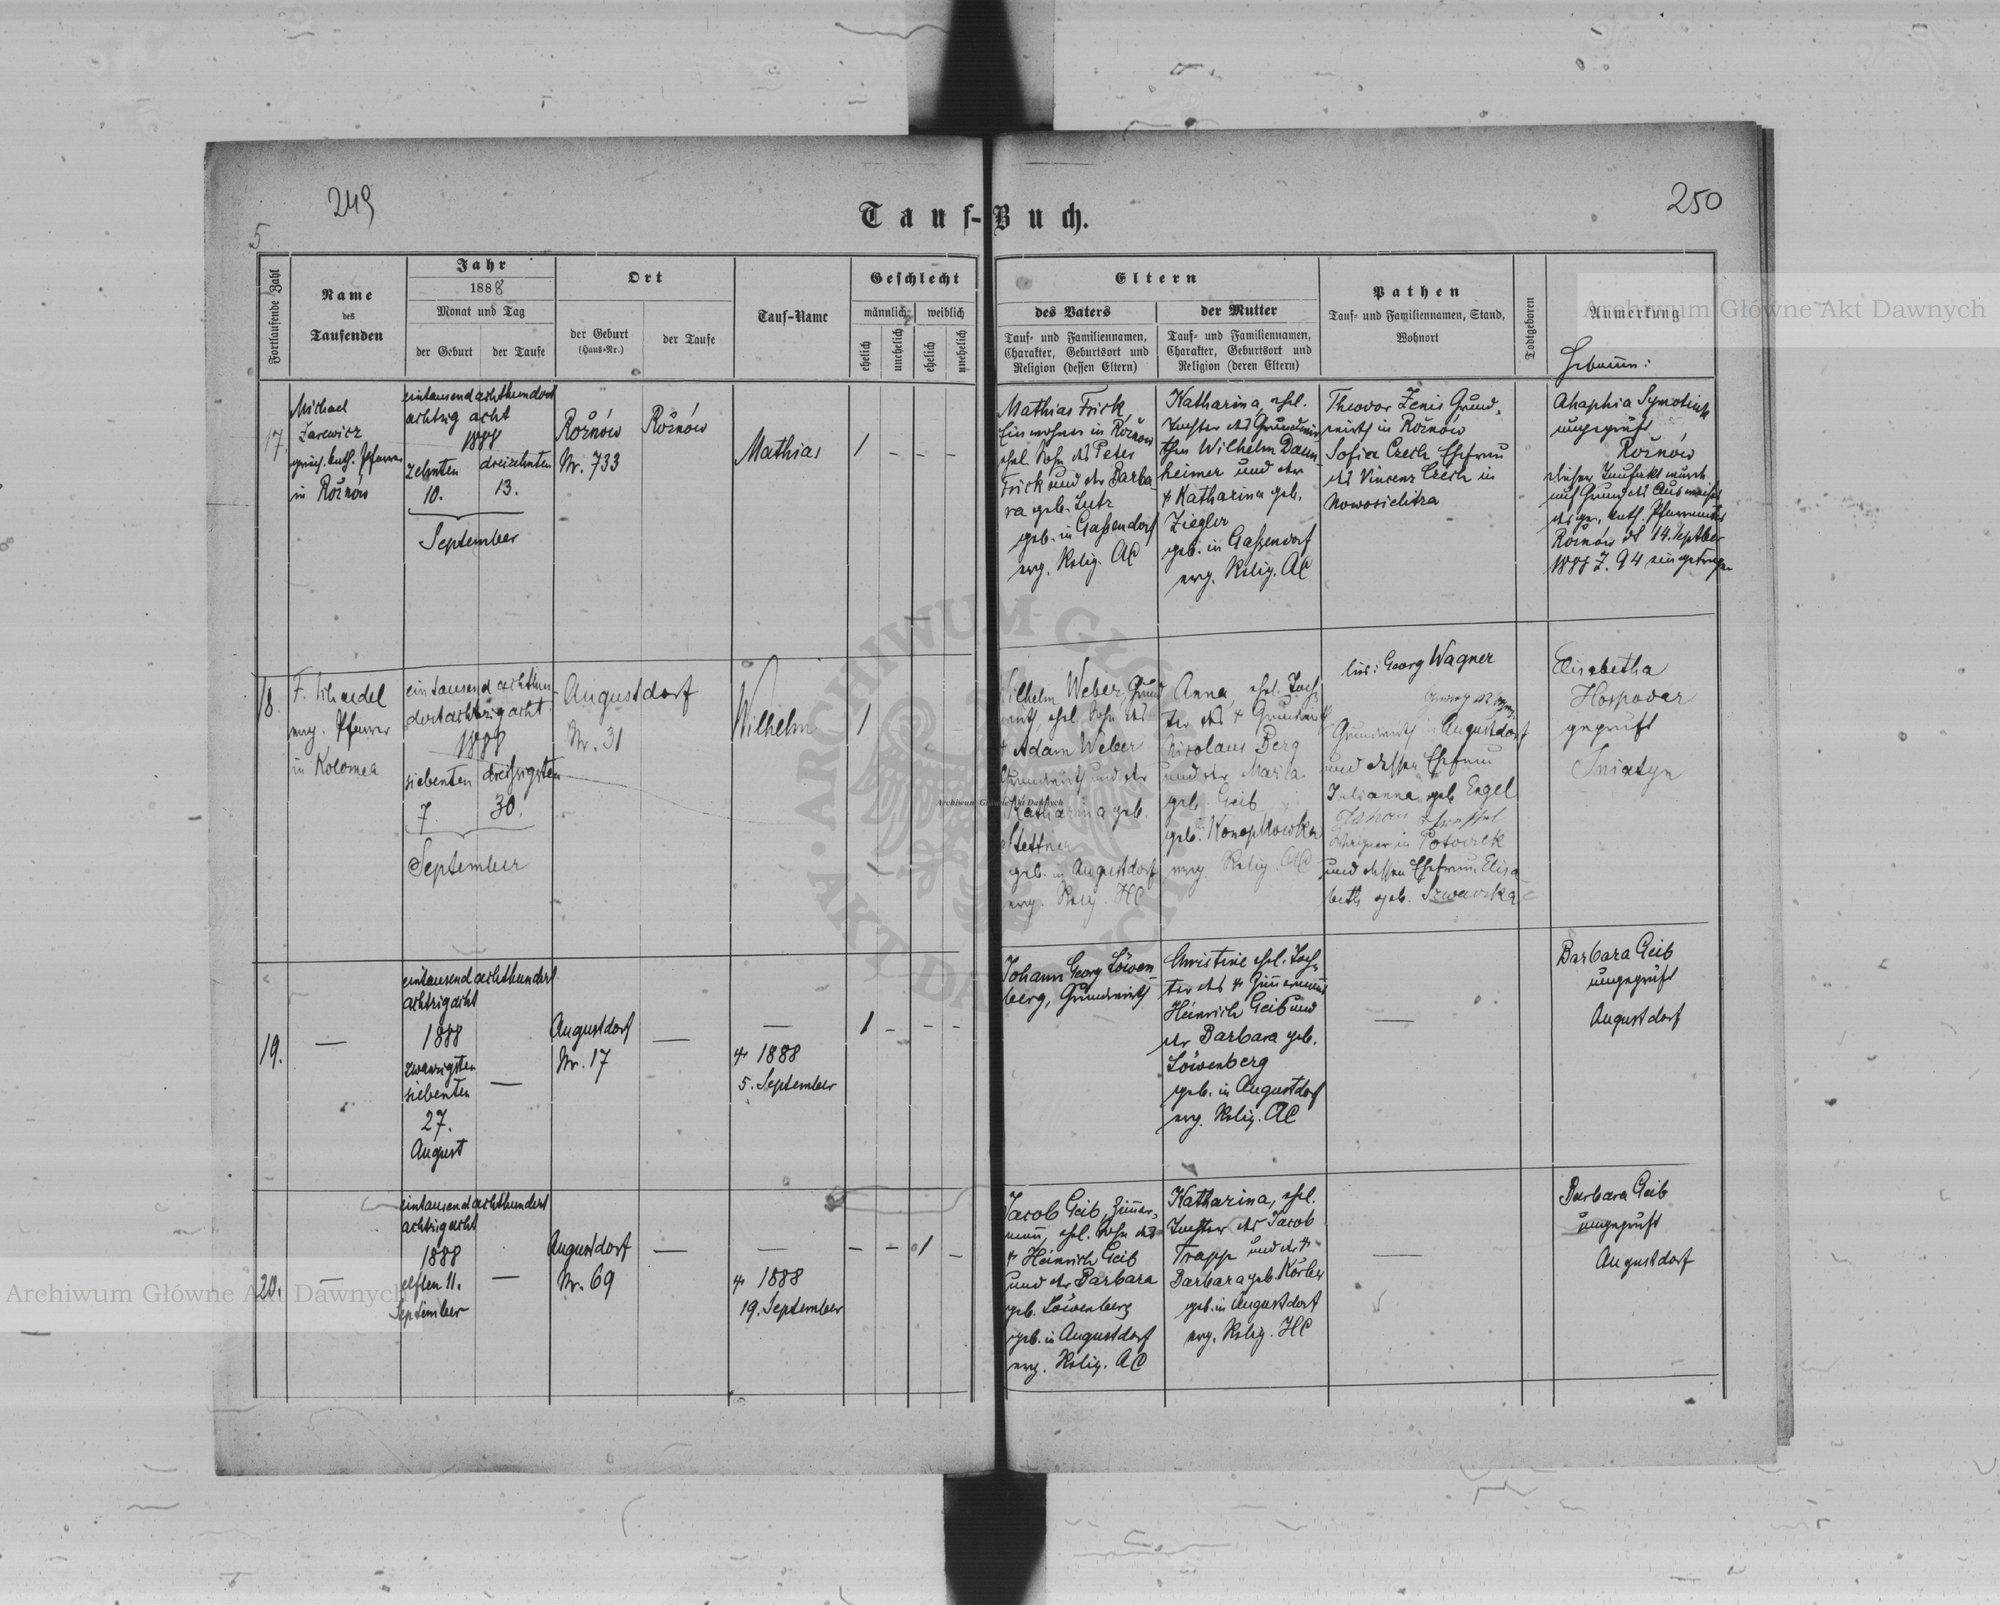 249
250
5
Tauf-Buch.
Fortlaufende Zahl
Name
des
Taufenden
Jahr
1888
Monat und Tag
der Geburt
der Taufe
Ort
der Geburt
(Haus-Nr.)
der Taufe
Tauf-Name
Geschlecht
männlich
weiblich
ehelich
unehelich
ehelich
unehelich
Eltern
des Vaters
Tauf- und Familiennamen,
Charakter, Geburtsort und
Religion (dessen Eltern)
der Mutter
Tauf- und Familiennamen,
Charakter, Geburtsort und
Religion (deren Eltern)
Pathen
Tauf- und Familiennamen, Stand,
Wohnort
Todtgeboren
Anmerkung
Hebamm:
17.
Michael
Zarewicz
griech. kath. Pfarrer
in Rožnów
eintausend achthundert
achtzig acht
1888
zehnten
10.
dreizehnten
13.
September
Rožnów
Nr. 733
Rožnów
Mathias
1 - - -
Mathias Frick,
Einwohner in Rožnów
ehel. Sohn des Peter
Frick und der Barba-
ra geb. Lutz
geb. in Gaßendorf
evg. Relig. AC
Katharina, ehel.
Tochter des Grundwir-
then Wilhelm Daum-
heimer und der
+ Katharina geb.
Ziegler
geb. in Gaßendorf
evg. Relig. AC
Theodor Zenis Grund-
wirth in Rožnów
Sofia Czech Ehefrau
des Vincenz Czech in
Nowosielitza
Ahaphia
ungeprüft
Rožnów
dieser Taufakt wurde
auf Grund des Ausweises
des gr. kath. Pfarramtes
Rožnów dd 14. Septber
Z. 94 eingetragen
18.
F. Schaedel
evg. Pfarrer
in Kolomea
eintausend achthun-
dertachtzigacht
1888
siebenten
7.
dreißigsten
30.
September
Augustdorf
Nr. 31
Wilhelm
1
Wilhelm Weber, Grund
wirth, ehel. Sohn des
+ Adam Weber
Grundwirth und der
Katharina geb.
Stettner
geb. in Augustdorf
evg. Relig. HC
Anna, ehel. Toch-
ter des + Grundwirth
Nicolaus Berg
und der Maria
geb. Geib
geb. Konopkowka
evg. Relig. AC
lies: Georg Wagner
Grundwirth in Augustdorf
und dessen Ehefrau
Julianna geb. Engel
Johann
in Potoczek
und dessen Ehefrau Elisa-
beth geb.
Elisabetha
Hospodar
geprüft
Sniatyn
19.
—
eintausend achthundert
achtzigacht
1888
zwanzigsten
siebenten
27.
August
—
Augustdorf
Nr. 17
—
—
+ 1888
5. September
1 - - -
Johann Georg Löwen-
berg, Grundwirth
Christine ehel. Toch-
ter des + Zimmermann
Heinrich Geib und
der Barbara geb.
Löwenberg
geb. in Augustdorf
evg. Relig. AC
—
Barbara Geib
ungeprüft
Augustdorf
20.
—
eintausend achthundert
achtzigacht
1888
elften 11.
September
—
Augustdorf
Nr. 69
—
—
+ 1888
19. September
- - 1 -
Jacob Geib, Zimmer-
mann, ehel. Sohn des
+ Heinrich Geib
und der Barbara
geb. Löwenberg
geb. in Augustdorf
evg. Relig. AC
Katharina, ehel.
Tochter des Jacob
Trapp und der +
Barbara geb. Körber
geb. in Augustdorf
evg. Relig. HC
—
Barbara Geib
ungeprüft
Augustdorf
Archiwum Główne Akt Dawnych
Archiwum Główne Akt Dawnych
Archiwum Główne Akt Dawnych